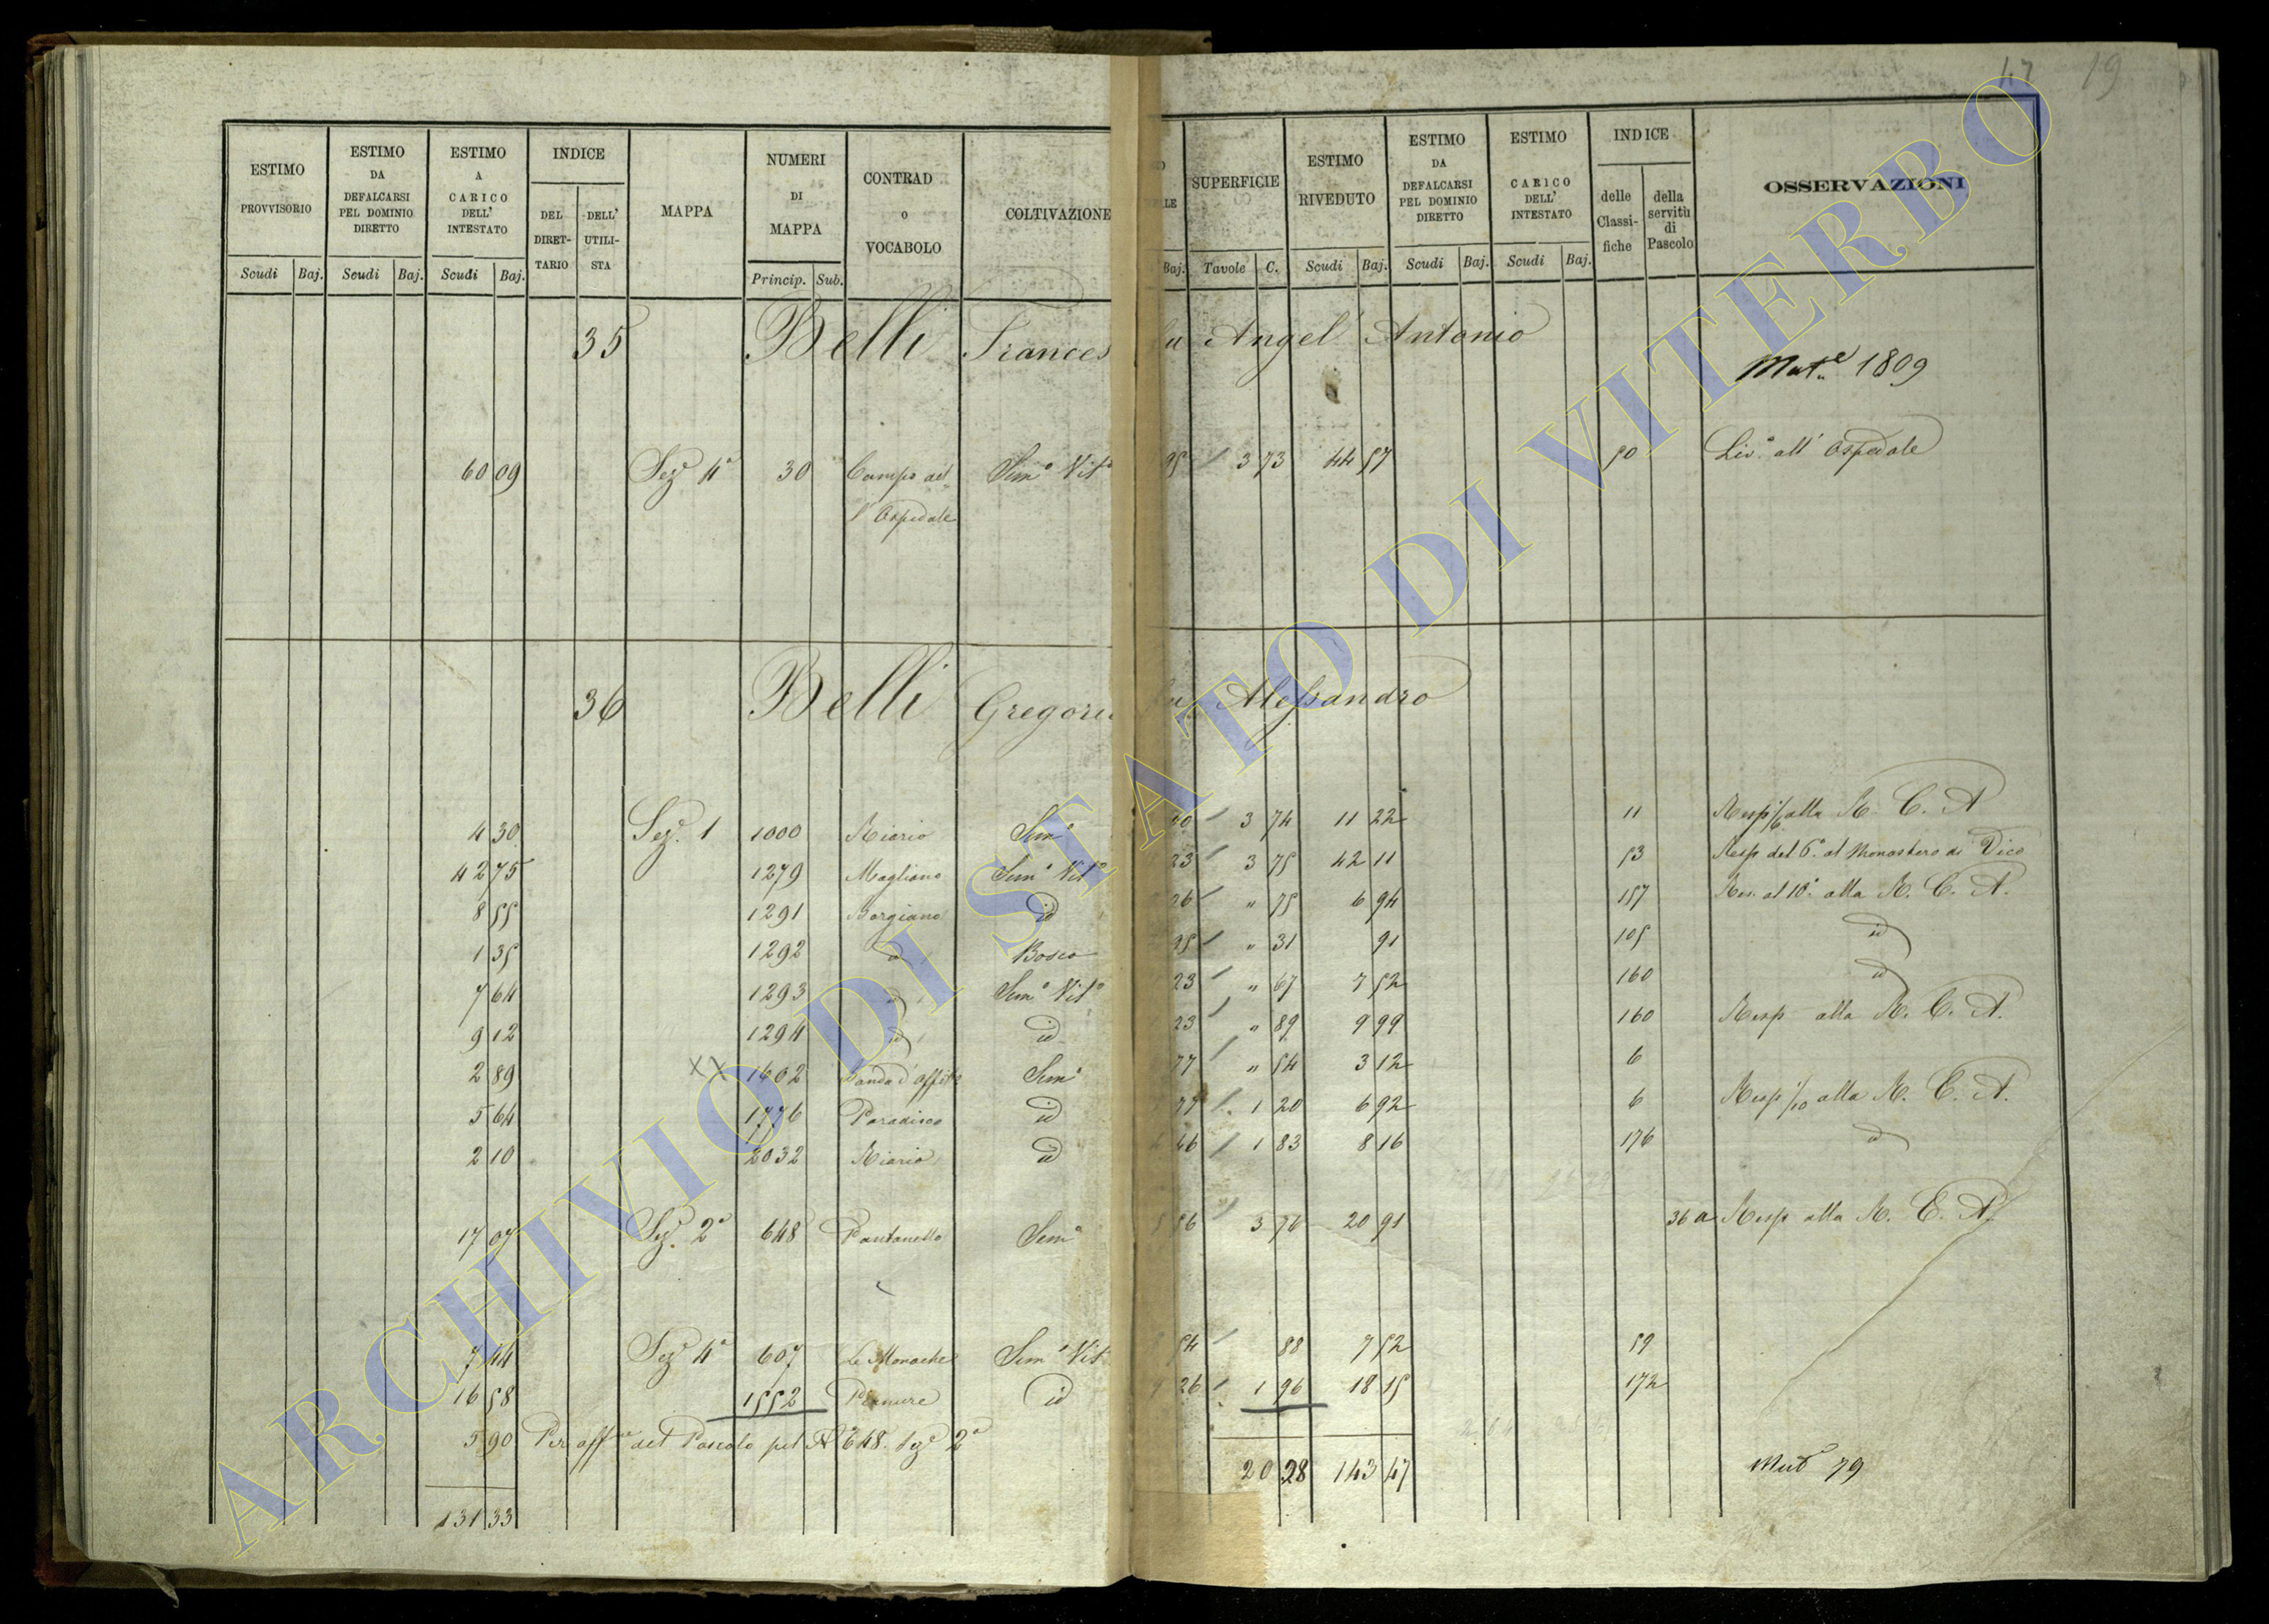 47 19
ESTIMO PROVVISORIO
ESTIMO DA DEFALCARSI PEL DOMINIO DIRETTO
ESTIMO A CARICO DELL' INTESTATO
INDICE
DEL DIRETTARIO
DELL' UTILISTA
MAPPA
NUMERI DI MAPPA
CONTRAD O VOCABOLO
COLTIVAZIONE
Scudi Baj. Scudi Baj. Scudi Baj. Princip. Sub.
SUPERFICIE
ESTIMO RIVEDUTO
ESTIMO DA DEFALCARSI PEL DOMINIO DIRETTO
ESTIMO CARICO DELL' INTESTATO
INDICE
delle Classifiche
della servitù di Pascolo
OSSERVAZIONI
Baj. Tavole C. Scudi Baj. Scudi Baj. Scudi Baj.
35 Belli Frances Angel' Antonio
Mut.e 1809
60 09 Sez.e 4a 30 Campo del- Sem.o Vit.o 95 3 73 44 57 50 Liv.o all' Ospedale
l'Ospedale
36 Belli Gregorio Alessandro
4 30 Sez.e 1 1000 Riario Sem.o 40 3 74 11 22 11 Resp 1/6 alla R. C. A
42 75 1279 Magliano Sem.o Vit.o 23 3 75 42 11 53 Resp del 6.o al Monastero di Vico
8 55 1291 Borgiano id 26 " 75 6 94 157 al 10.o alla R. C. A.
1 35 1292 id Bosco 95 " 31 91 105 id
7 64 1293 id Sem.o Vit.o 23 " 67 7 52 160 id
9 12 1294 id id 23 " 89 9 99 160 Resp alla R. C. A.
2 89 XX 1602 Sem.o 77 " 54 3 12 6
5 64 1776 Paradiso id 77 1 20 6 92 6 Resp 1/10 alla R. C. A.
2 10 2032 Riario id 46 1 83 8 16 176 id
17 07 Sez.e 2a 648 Pantanello Sem.o 56 3 76 20 91 36 a Resp alla R. C. A.
7 44 Sez.e 4a 607 Le Monache Sem.o Vit 54 88 7 52 59
16 58 1552 id 26 1 96 18 15 172
5 90 Per aff.ne del Pascolo pel N 648. Sez.e 2a
20 28 143 47 Mut.e 79
131 33
ARCHIVIO DI STATO DI VITERBO